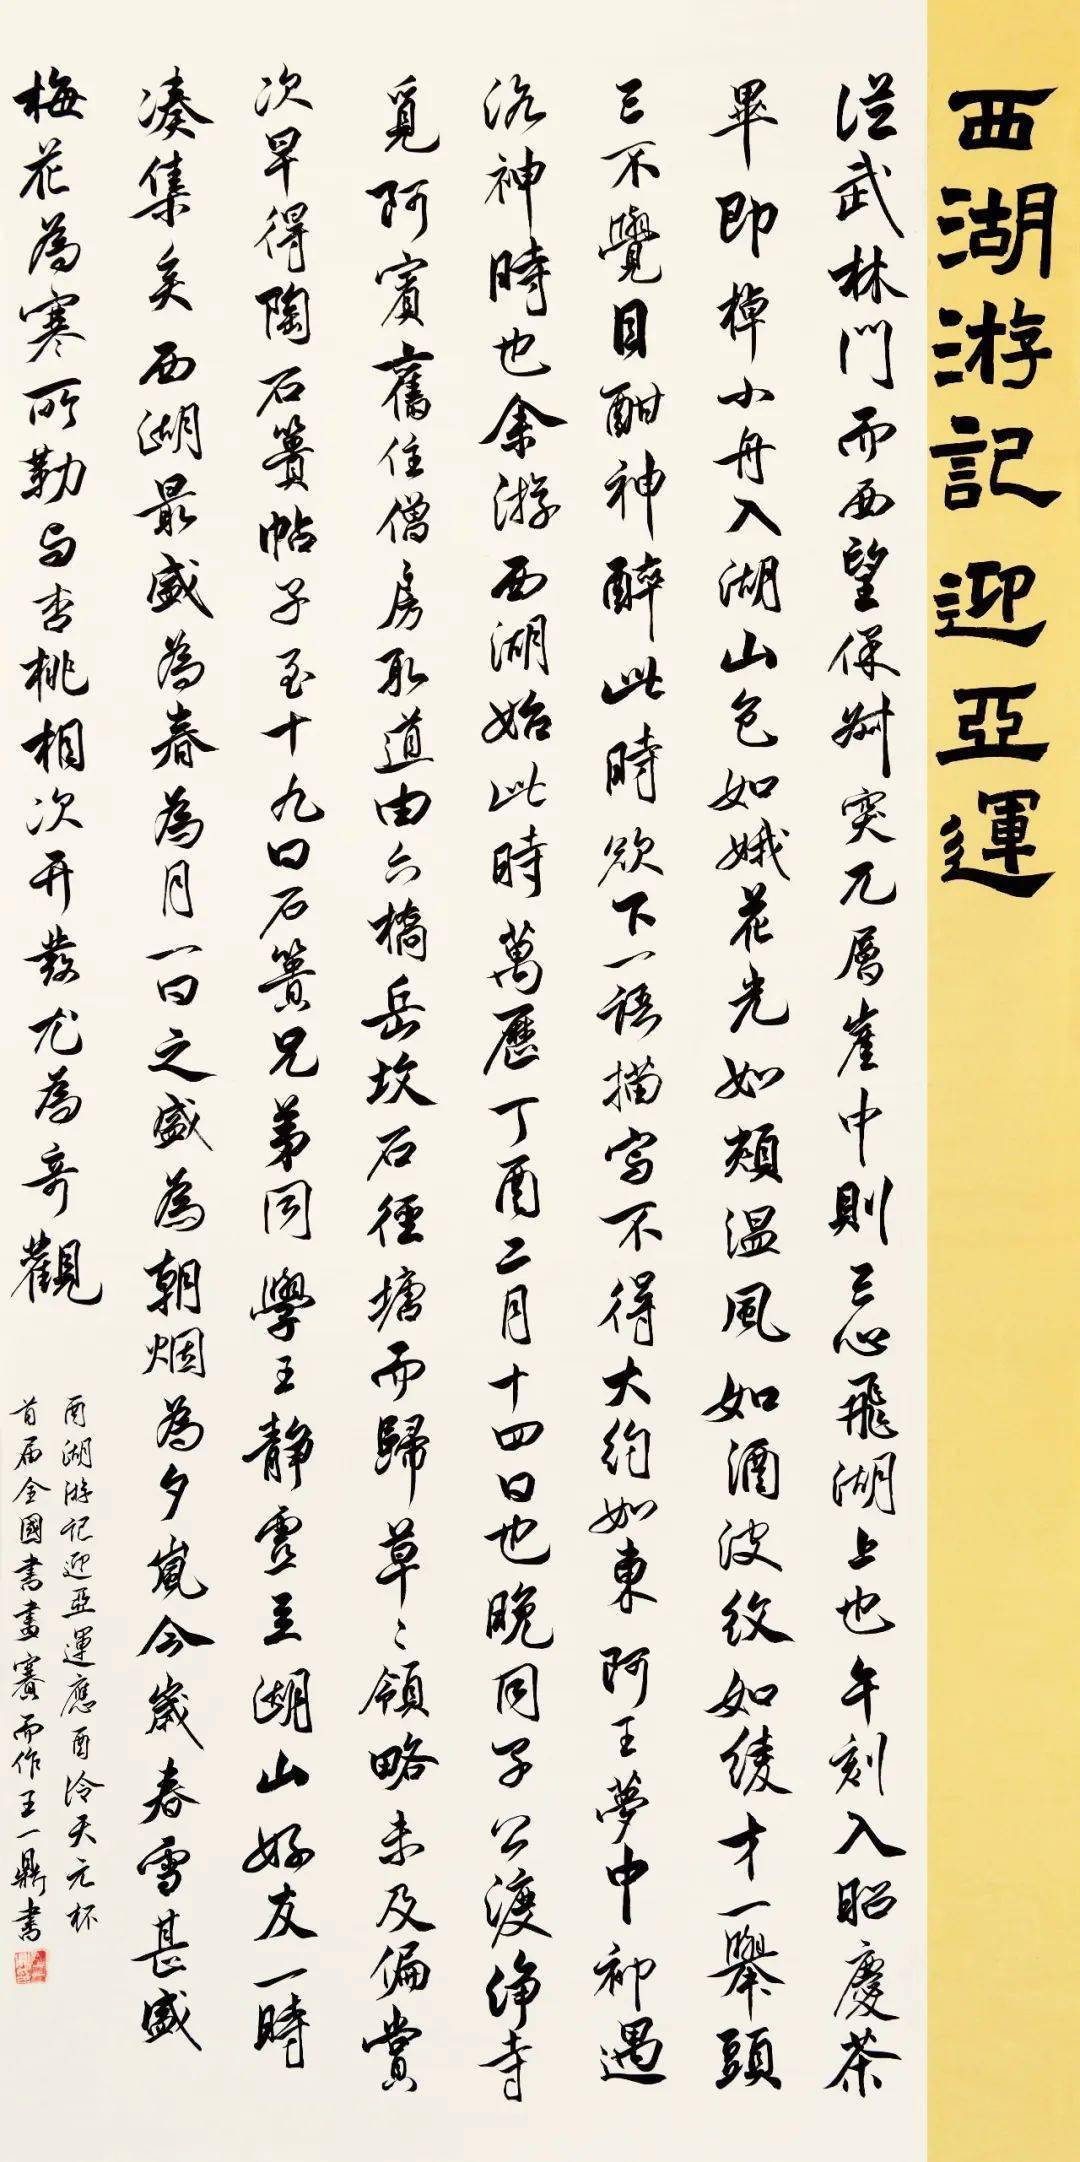 西湖游記迎亞運
從武林門而西望保叔突兀層崖中則已心飛湖上也午刻入昭慶茶
畢即棹小舟入湖山色如娥花光如頰溫風如酒波紋如綾才一舉頭
已不覺目酣神醉此時欲下一語描寫不得大約如東阿王夢中初遇
洛神時也余游西湖始此時萬曆丁酉二月十四日也晚同子公渡净寺
覓阿賓舊住僧房取道由六橋岳坟石徑塘而歸草草領略未及偏賞
次早得陶石簣帖子至十九日石簣兄弟同學王靜虛至湖山好友一時
凑集矣西湖最盛為春為月一日之盛為朝烟為夕嵐今歲春雪甚盛
梅花為寒所勒与杏桃相次开發尤為奇觀
西湖游記迎亞運應西泠天元杯
首届全國書畫賽而作王一鼎書